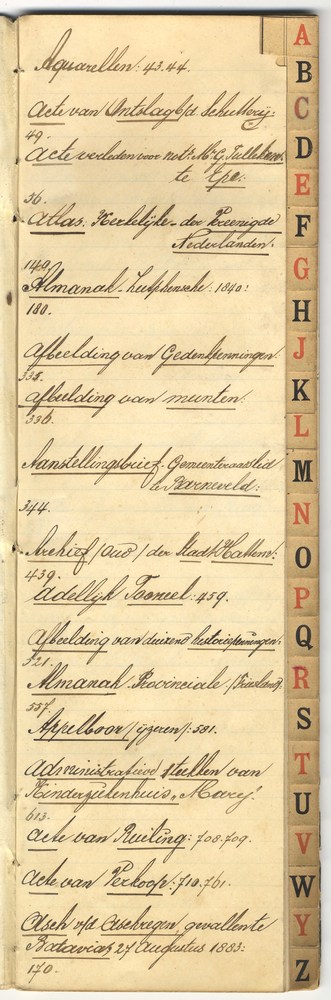 Aquarellen: 43.44.
Acte van Ontslag b/d Schutterij:
49.
Acte verleden voor nots. Mr. G. Tulleken.
te Epe:
56.
Atlas. Kerkelijke der Vereenigde
Nederlanden.
140.
Almanak. Zutphensche: 1840:
180.
Afbeelding van Gedenkpenningen.
335.
Afbeelding van munten.
336.
Aanstellingsbrief. Gemeenteraadslid
Barneveld:
344.
Archief / Oud / der Stadt Hattem:
439.
Adellijk Tooneel: 459.
Afbeelding van duizend historiepenningen.
521.
Almanak Provinciale / Friesland /.
557.
Appelboor / ijzeren /: 581.
Administratieve stukken van
Kinderziekenhuis „Mary".
613.
Acte van Ruiling: 708.709.
Acte van Verkoop: 710.761.
Asch v/d Aschregen, gevallen te
Batavia, 27 Augustus 1883:
170.
A
B
C
D
E
F
G
H
J
K
L
M
N
O
P
Q
R
S
T
U
V
W
Y
Z